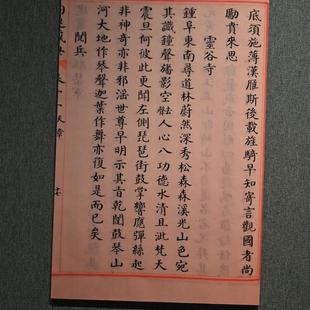 底須施薄漢雁斯後載旌騎早知寄言觀國者尚
勵賁來思
靈谷寺
鍾阜東南尋道林蔚然深秀松森森溪光山色宛
其識鐘聲旛影空人心八功德水清且泚梵天
震旦何彼此更聞左側琵琶街鼓掌響應彈絲起
非神奇亦非邪滛世尊早明示其旨乾闥鼓琴山
河大地作琴聲迦葉作舞亦復如是而已矣
閱兵